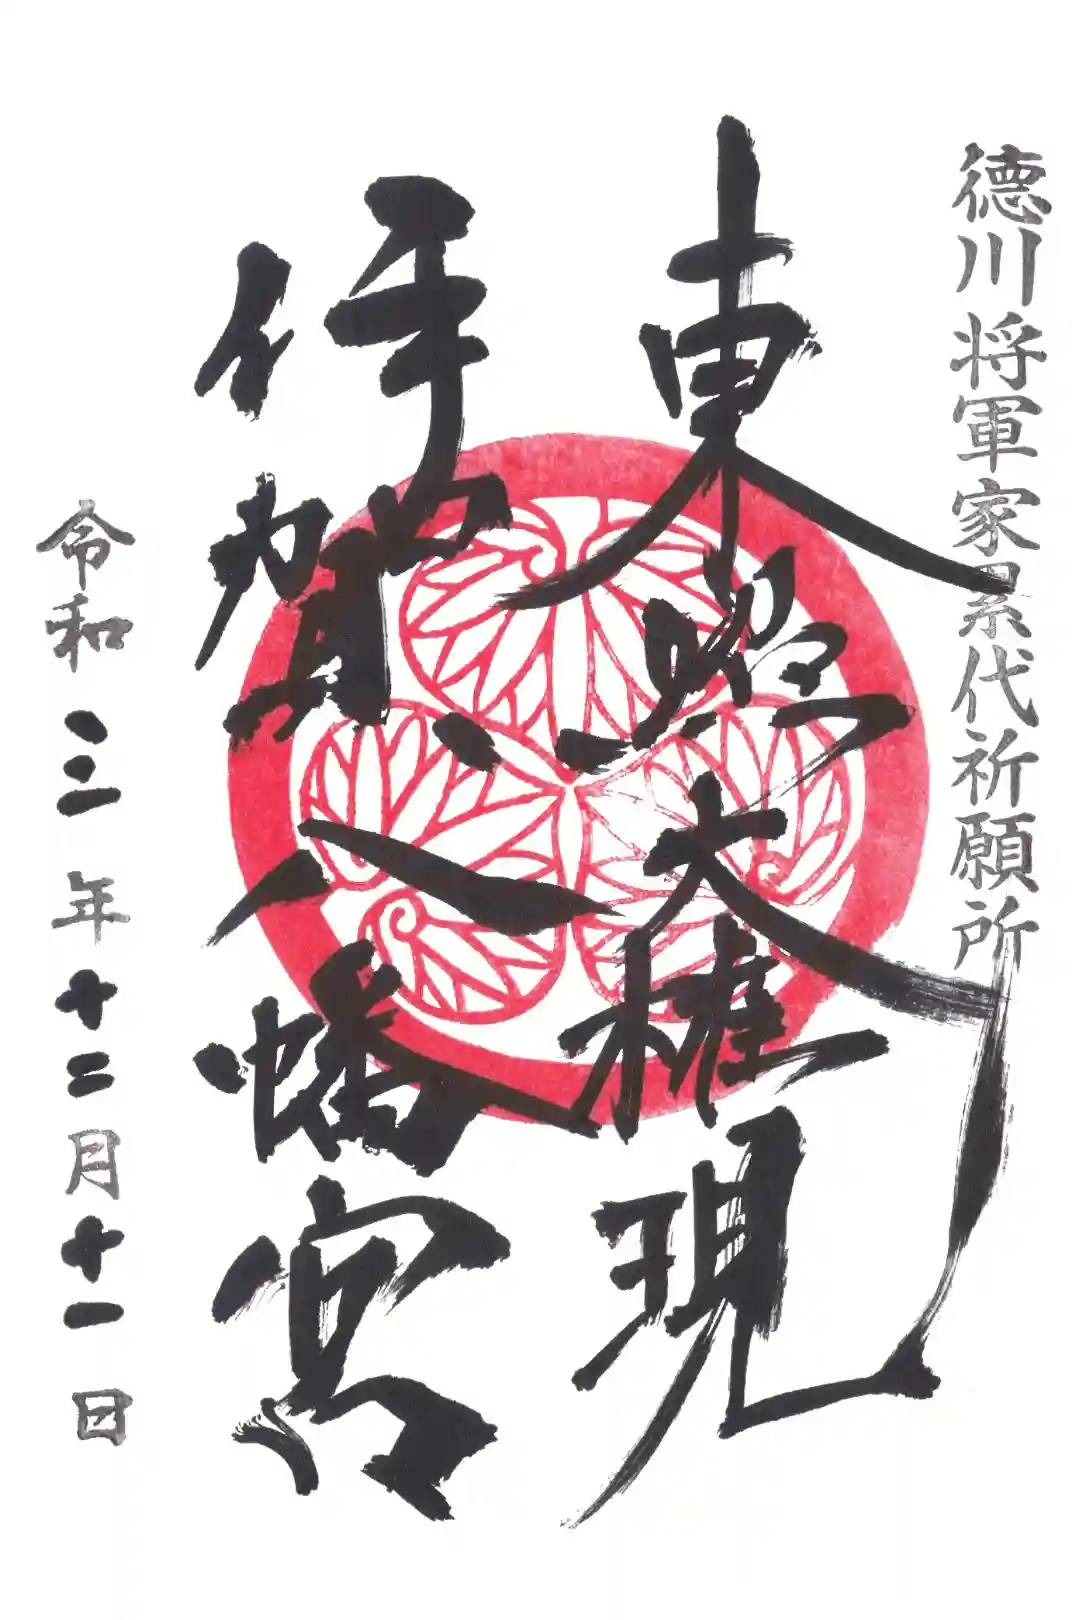 徳川将軍家累代祈願所
東照大権現
伊賀八幡宮
令和三年十二月十一日